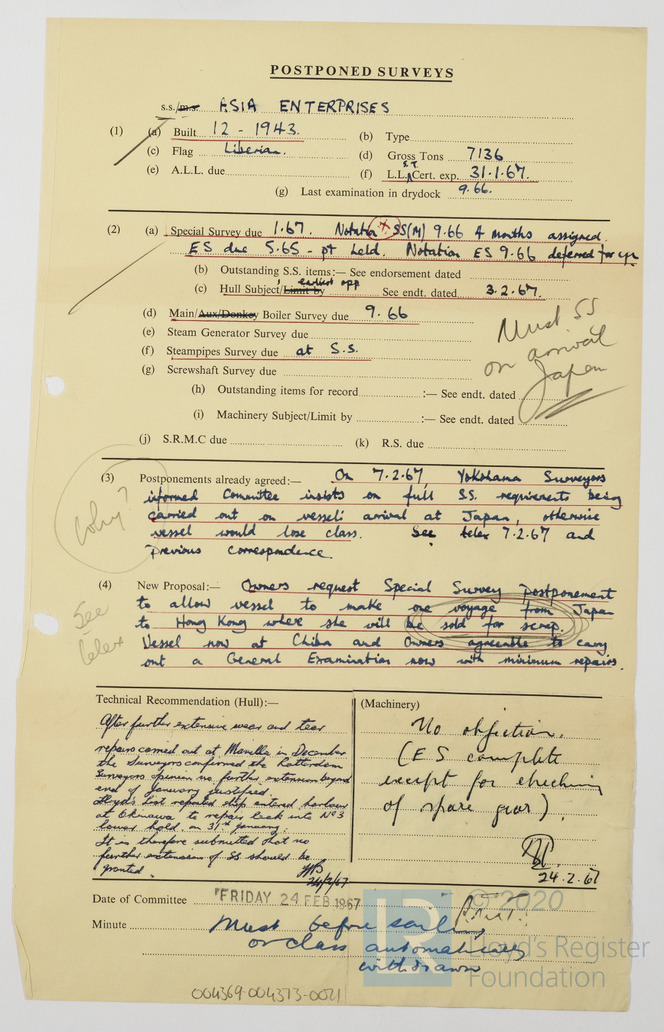 POSTPONED SURVEYS
s.s./m.s. ASIA ENTERPRISES
(1) (a) Built 12 - 1943. (b) Type
(c) Flag Liberian. (d) Gross Tons 7136
(e) A.L.L. due (f) L.L. Cert. exp. 31.1.67.
(g) Last examination in drydock 9.66.
(2) (a) Special Survey due 1.67. Notation SS(M) 9.66 4 months assigned.
ES due 5.65 - pt held. Notation ES 9.66 deferred for
(b) Outstanding S.S. items:— See endorsement dated
earliest opp
(c) Hull Subject/Limit by See endt. dated 3.2.67.
(d) Main/Aux/Donkey Boiler Survey due 9.66
(e) Steam Generator Survey due
(f) Steampipes Survey due at S.S.
(g) Screwshaft Survey due
Must SS
on arrival
Japan
(h) Outstanding items for record :— See endt. dated
(i) Machinery Subject/Limit by :— See endt. dated
(j) S.R.M.C due (k) R.S. due
(3) Postponements already agreed:— On 7.2.67, Yokohama Surveyors
informed Committee insists on full S.S. requirements being
carried out on vessel's arrival at Japan, otherwise
vessel would lose class. See telex 7.2.67 and
previous correspondence.
Why?
(4) New Proposal:— Owners request Special Survey postponement
to allow vessel to make one voyage from Japan
to Hong Kong where she will be sold for scrap.
Vessel now at Chiba and Owners agreeable to carry
out a General Examination now with minimum repairs.
See
telex
Technical Recommendation (Hull):—
After further extensive wear and tear
repairs carried out at Manilla in December
the Surveyors confirmed the Rotterdam
Surveyors opinion no further extension beyond
end of January justified.
Lloyd's List reported ship entered harbour
at Okinawa to repair leak into No 3
lower hold, on 31st January.
It is therefore submitted that no
further extension of SS should be
granted.
24/2/67
(Machinery)
No objection.
(ES complete
except for checking
of spare gear).
24.2.67
Date of Committee FRIDAY 24 FEB 1967
Minute Must before sailing
or class automatically
withdrawn
© 2020
Lloyd's Register
Foundation
004369-004373-0021